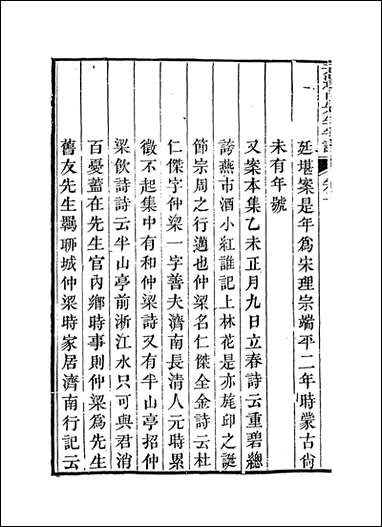 延堪案是年為宋理宗端平二年時蒙古尙
未有年號
又案本集乙未正月九日立春詩云重碧總
誇燕市酒小紅誰記上林花是亦旄邱之誕
節宗周之行邁也仲梁名仁傑全金詩云杜
仁傑字仲梁一字善夫濟南長清人元時累
徵不起集中有和仲梁詩又有半山亭招仲
梁飲詩詩云半山亭前浙江水只可與君消
百憂蓋在先生官內鄉時事則仲梁為先生
舊友先生羈聊城仲梁時家居濟南行記云